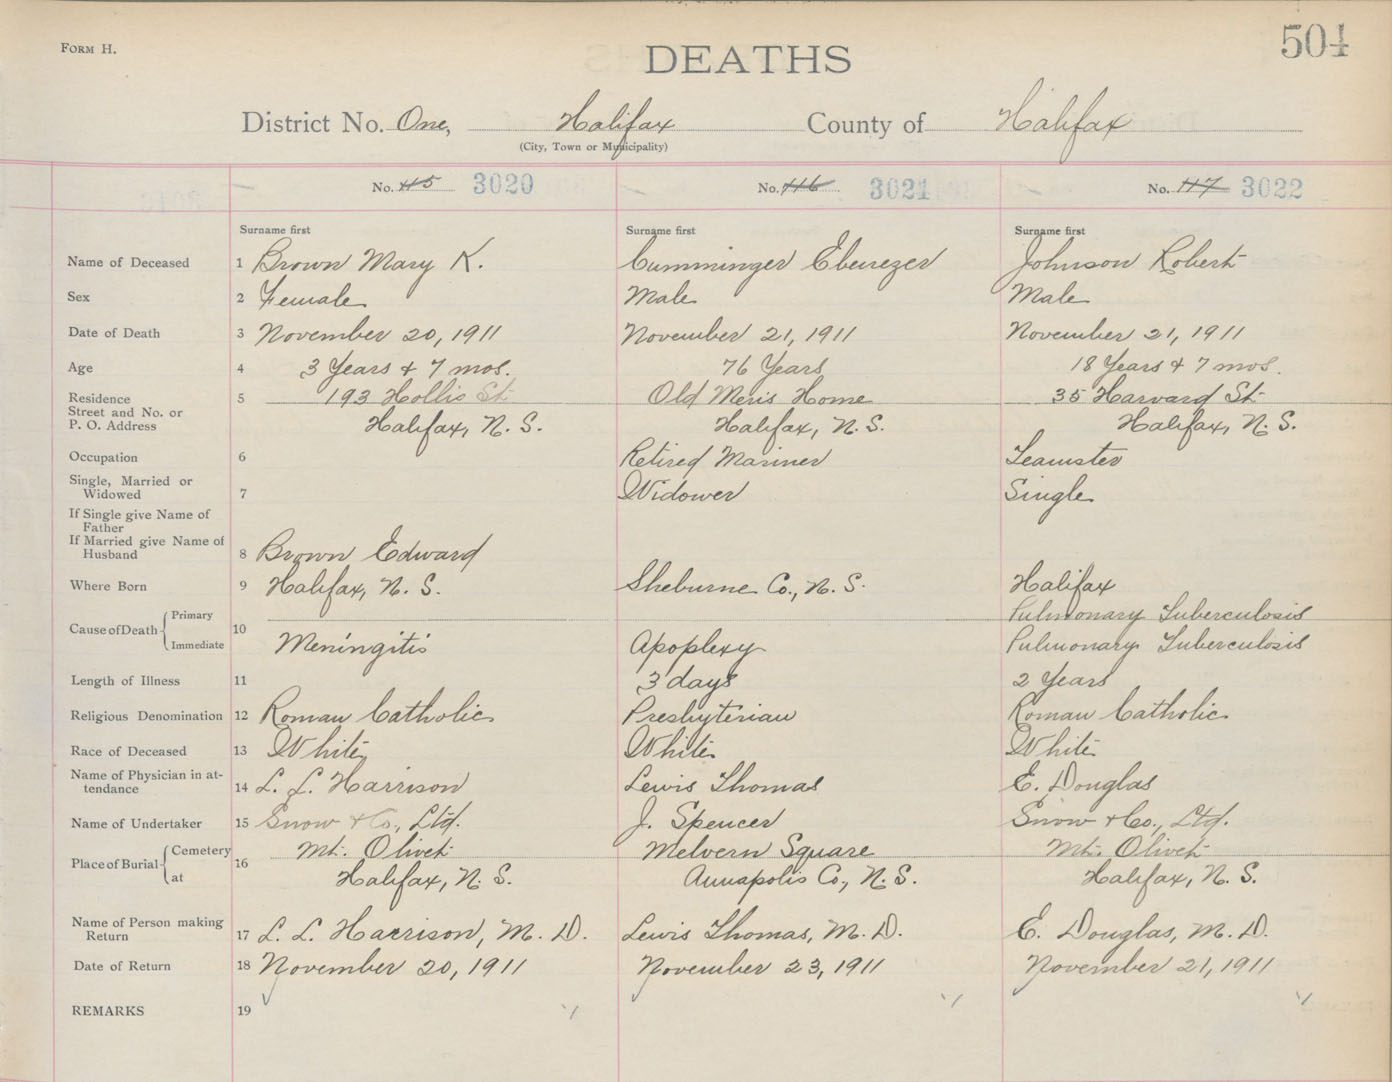 FORM H.
504
DEATHS
District No. One, Halifax County of Halifax
(City, Town or Municipality)
No. 115 3020 No. 116 3021 No. 117 3022
Surname first Surname first Surname first
Name of Deceased 1 Brown Mary K. Cumminger Ebenezer Johnson Robert
Sex 2 Female Male Male
Date of Death 3 November 20, 1911 November 21, 1911 November 21, 1911
Age 4 3 Years & 7 mos. 76 Years 18 Years & 7 mos.
Residence 5 193 Hollis St. Old Men's Home 35 Harvard St.
Street and No. or
P. O. Address Halifax, N. S. Halifax, N. S. Halifax, N. S.
Occupation 6 Retired Mariner Teamster
Single, Married or
Widowed 7 Widower Single
If Single give Name of
Father
If Married give Name of
Husband 8 Brown Edward
Where Born 9 Halifax, N. S. Sheburne Co., N. S. Halifax
Cause of Death Primary 10 Pulmonary Tuberculosis
Immediate Meningitis Apoplexy Pulmonary Tuberculosis
Length of Illness 11 3 days 2 Years
Religious Denomination 12 Roman Catholic Presbyterian Roman Catholic
Race of Deceased 13 White White White
Name of Physician in at-
tendance 14 L. L. Harrison Lewis Thomas E. Douglas
Name of Undertaker 15 Snow & Co., Ltd. J. Spencer Snow & Co., Ltd.
Place of Burial Cemetery 16 Mt. Olivet Melvern Square Mt. Olivet
at Halifax, N. S. Annapolis Co., N. S. Halifax, N. S.
Name of Person making
Return 17 L. L. Harrison, M. D. Lewis Thomas, M. D. E. Douglas, M. D.
Date of Return 18 November 20, 1911 November 23, 1911 November 21, 1911
REMARKS 19